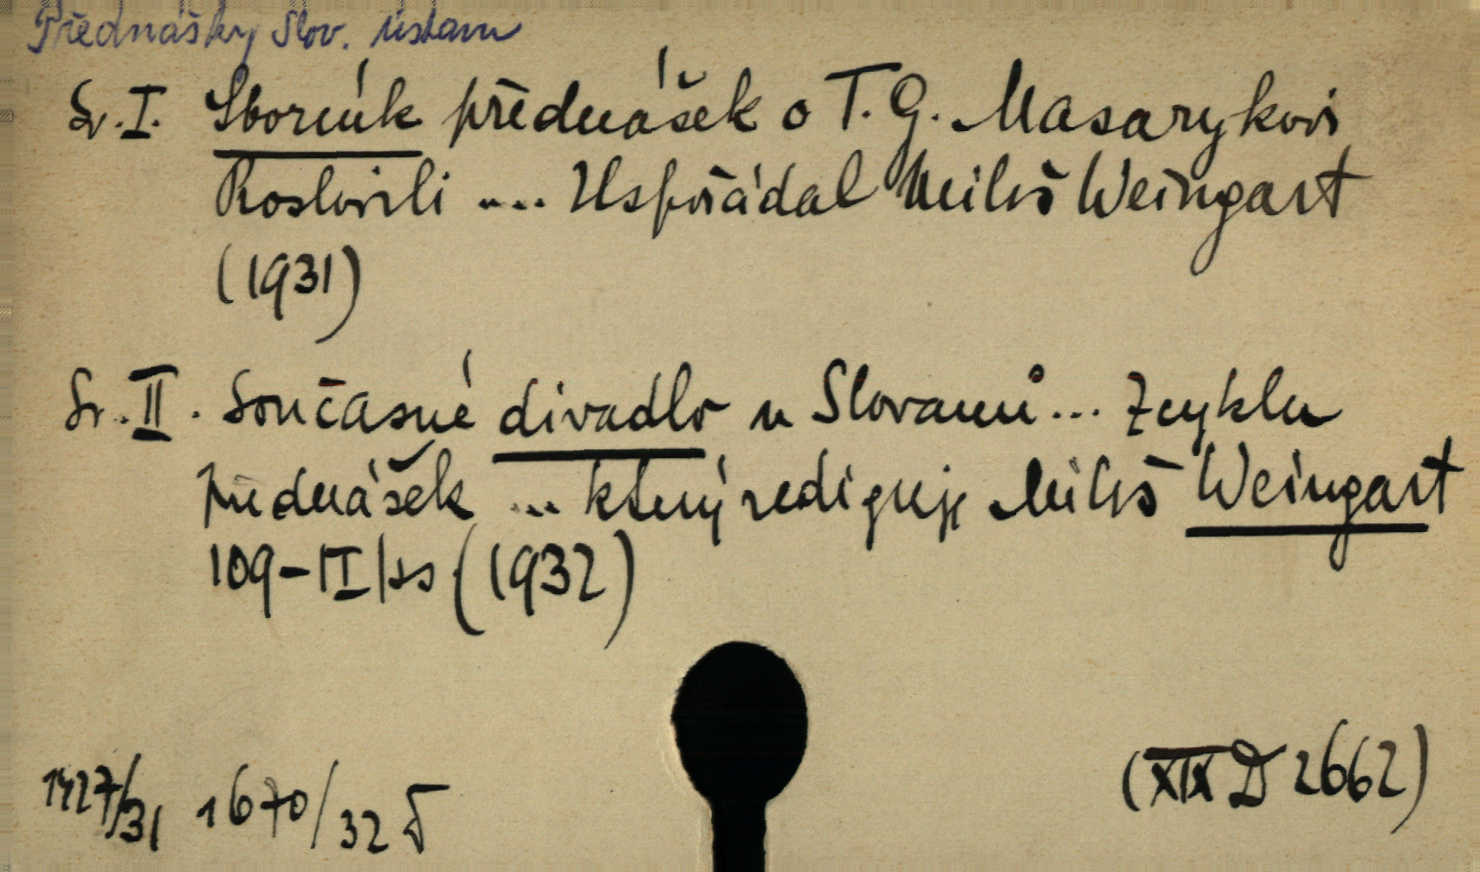 Přednášky Slov. ústavu
Sv. I. Sborník přednášek o T. G. Masarykovi
Proslovili .... Uspořádal Miloš Weingart
(1931)
Sv. II. Současné divadlo u Slovanů... Z cyklu
přednášek ... který rediguje Miloš Weingart
109-II (1932)
1427/31 1670/32
(XIX D 2662)